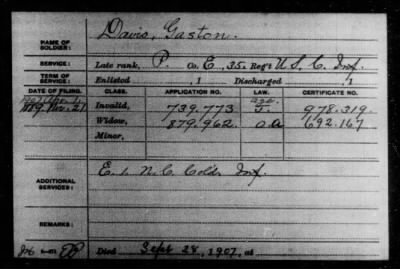 NAME OF SOLDIER: Davis, Gaston.
SERVICE: Late rank, P. Co. E, 35 Reg't U.S.C. Inf.
TERM OF SERVICE: Enlisted , 1 Discharged , 1
DATE OF FILING. CLASS. APPLICATION NO. LAW. CERTIFICATE NO.
Invalid, 739.773 978.319.
Widow, 879.962 O.a 692.167
Minor,
ADDITIONAL SERVICES: E. 1. N.C. Cold. Inf.
REMARKS:
Died Sept 28, 1907, at